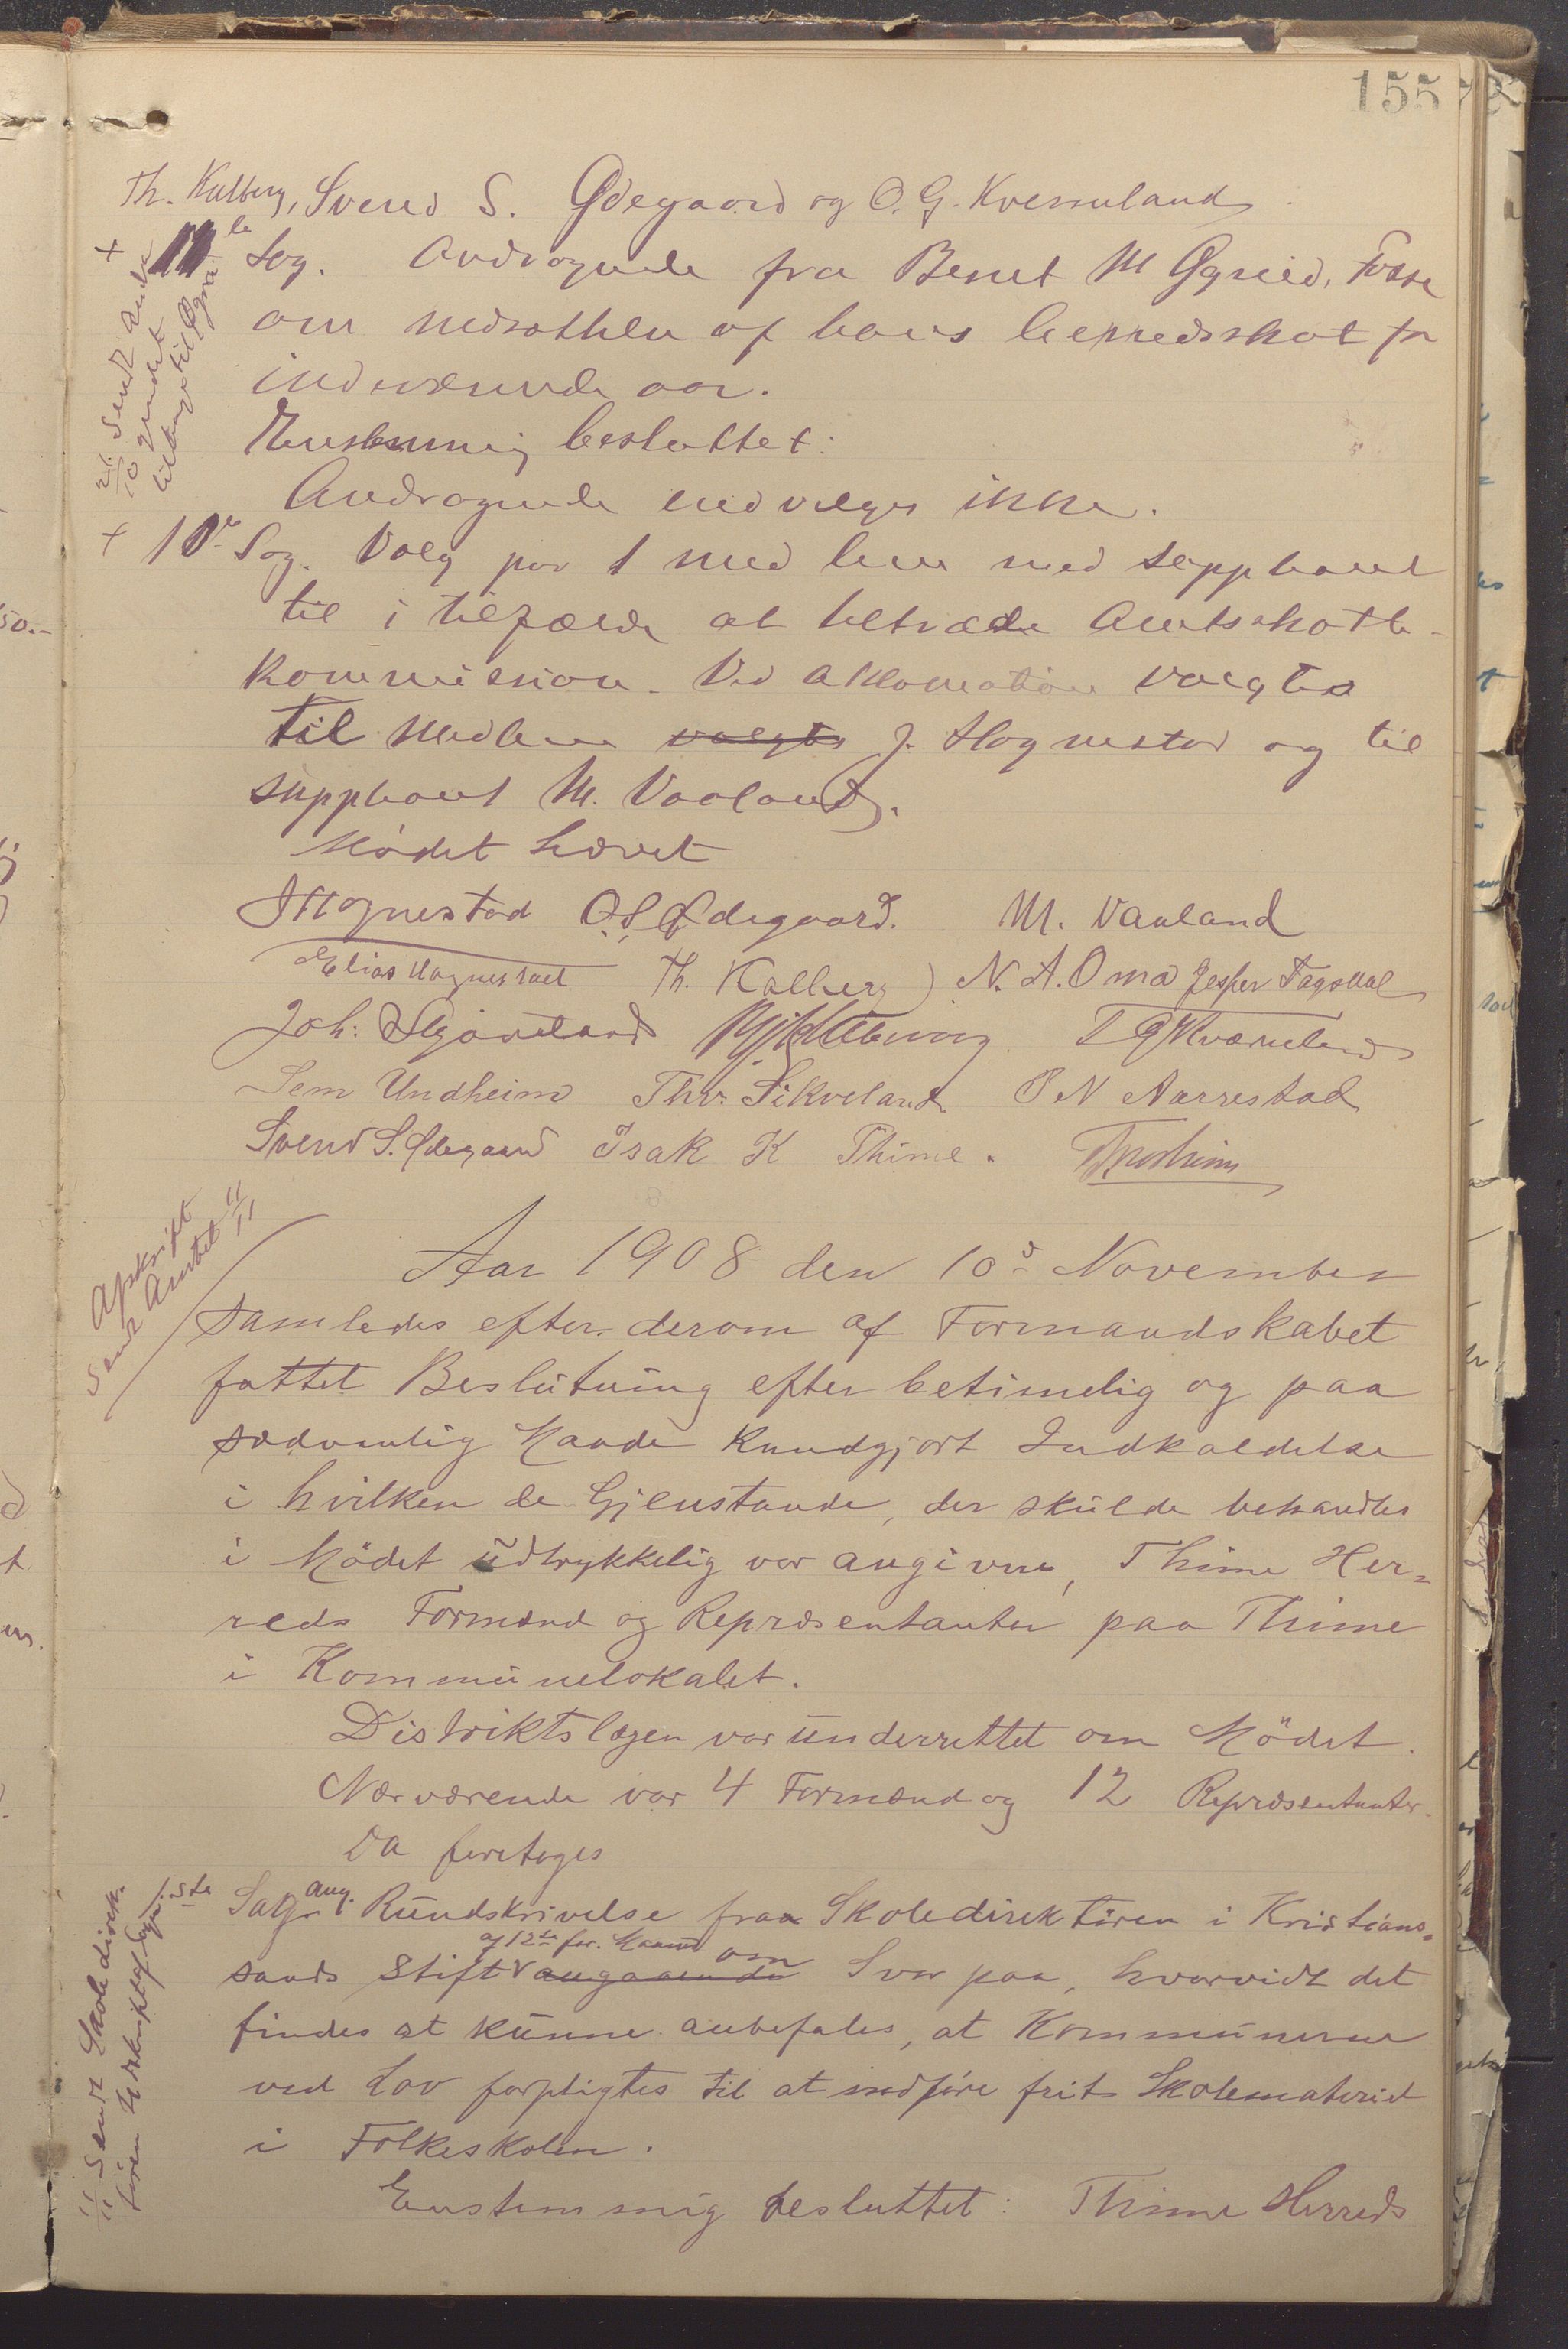 155
Th. Kalberg, Svend S. Ødegaard og O. G. Kverneland
+ 11te Sag. Andragende fra Berent M Øgreid, Fosse
om nedsættelse af hans herredsskat for
indeværende aar.
Enstemmig besluttet:
Andragende indvilges ikke.
21/10 Sendt andra
gendet
tilbage til Øgrei
+ 10de Sag. Valg paa 1 medlem med suppleant
til i tilfælde at tiltræde Amtsskatte-
kommission. Ved Akklamation valgtes
til medlem valgtes J. Hognestad og til
suppleant M. Vaaland.
Mödet hævet
J Hognestad O. S. Ødegaard. M. Vaaland
Elias Hognestad Th. Kalberg N. A. Oma Jesper Fagsdal
Joh: Skjæveland T G Kværneland
Sem Undheim Thv. Sikveland P N Aarrestad
Svend S. Ødegaard Isak K Thime.
Afskrift
Sendt Amtet 11/11
Aar 1908 den 10d November
samledes efter derom af Formandskabet
fattet Beslutning efter betimelig og paa
sædvanlig Maade kundgjort Indkaldelse
i hvilken de Gjenstande, der skulde behandles
i Mödet udtrykkelig var angivne, Thime Her=
reds Formænd og Repræsentanter paa Thime
i Kommunelokalet.
Distriktslægen var underrettet om Mödet.
Nærværende var 4 Formænd og 12 Repræsentanter.
Da foretoges
1.ste Sag ang. Rundskrivelse fra Skoledirektören i Kristians=
sands Stift af 12te for. Maaned angaaende om Svar paa, hvorvidt det
findes at kunne anbefales, at Kommunerne
ved Lov forpligtes til at indföre frit Skolemateriel
i Folkeskolen.
11/11 Sendt Skoledirek-
tören Udskrift af Sagen
Enstemmig besluttet: Thime Herreds